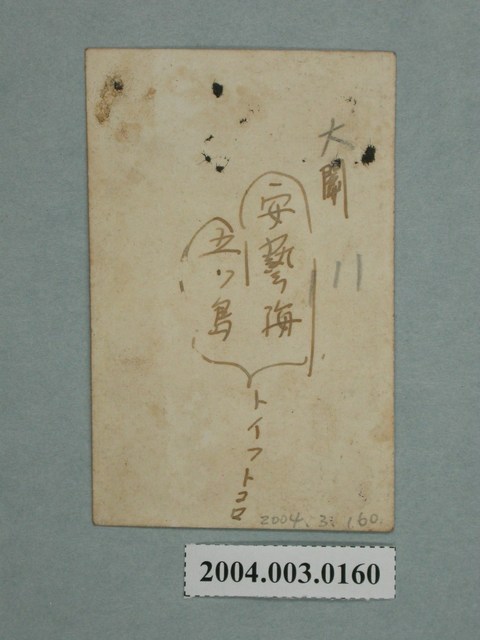 大關
安藝海
五ツ島
トイフトコロ
2004.3.160
2004.003.0160